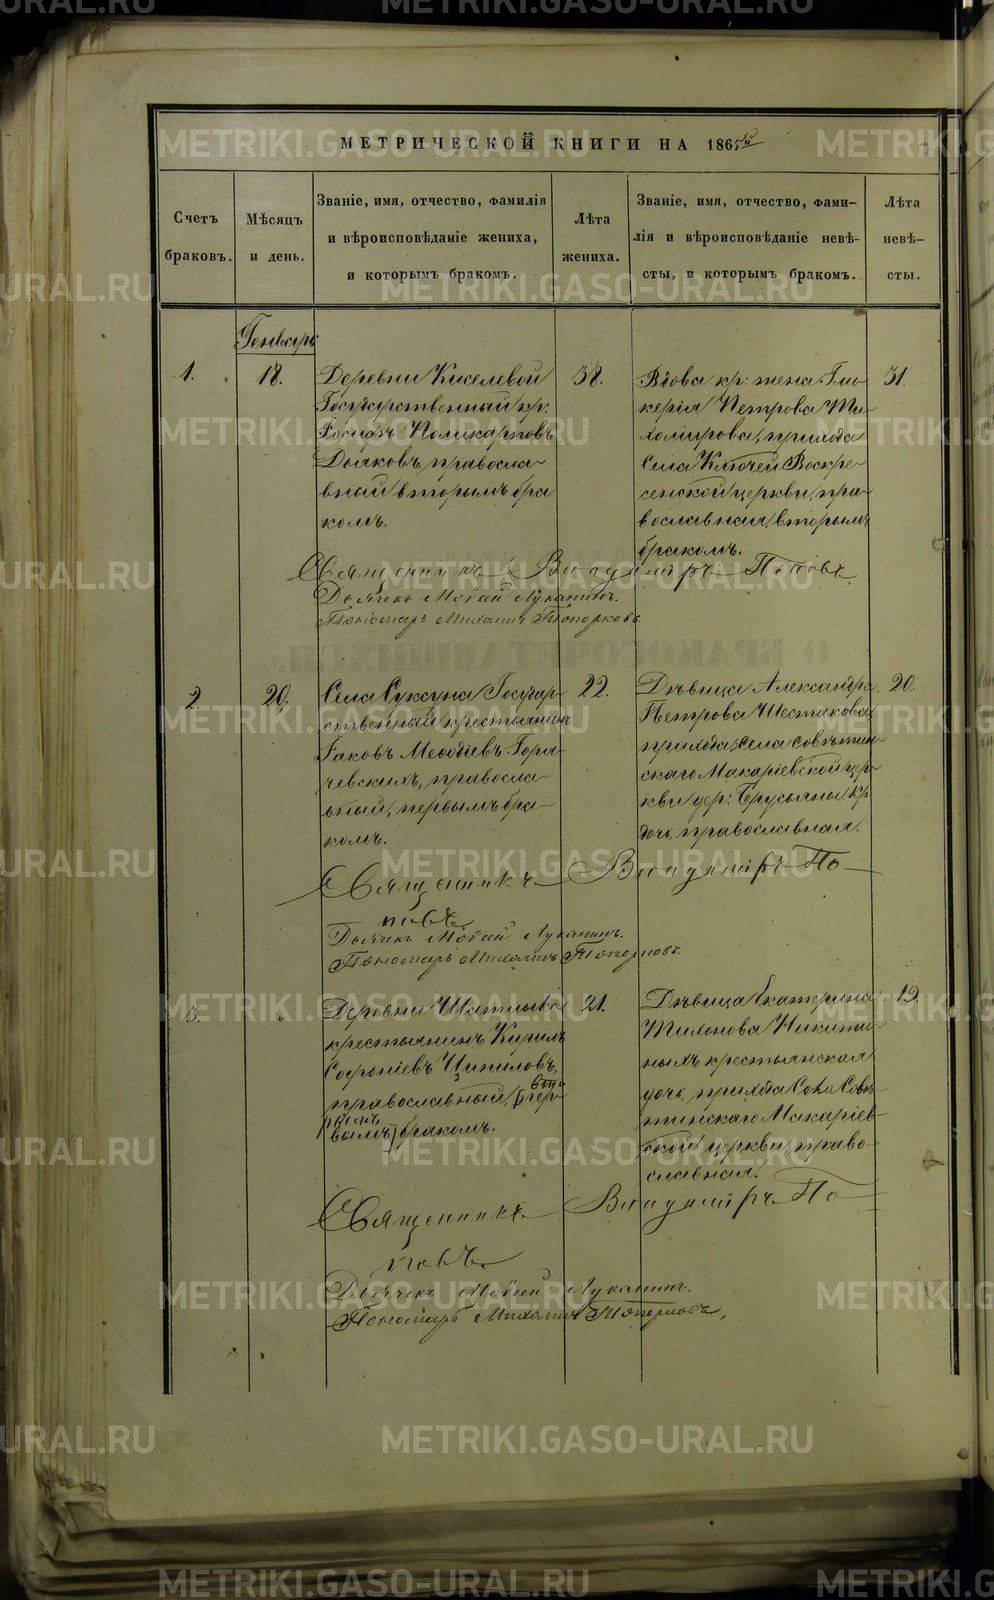 МЕТРИЧЕСКОЙ КНИГИ НА 186
Счетъ браковъ.
Мѣсяцъ и день.
Званіе, имя, отчество, фамилія
и вѣроисповѣданіе жениха,
и которымъ бракомъ.
Лѣта жениха.
Званіе, имя, отчество, фами-
лія и вѣроисповѣданіе невѣ-
сты, и которымъ бракомъ.
Лѣта невѣ-
сты.
Генварь
1.
18.
Деревни Киселевой
Государственный кр:
Іосифъ Поликарповъ
Дьяковъ, правосла-
вный вторымъ бра
комъ.
38.
Вдова кр: жена Гли-
керія Петрова Ти-
хомирова, прихода
Села Ключей Воскре-
сенской церкви, пра-
вославная, вторымъ
бракомъ.
31.
Священникъ Владиміръ Поповъ
Дьячекъ Моѵсей Луканинъ.
Пономарь Михаилъ Топорковъ
2.
20.
Села Суксуна Государ-
ственный крестьянинъ
Іаковъ Меѳодіевъ Горя-
чевскихъ, правосла-
вный, первымъ бра-
комъ.
22.
Дѣвица Александра
Петрова Шестакова,
прихода Села Совѣтин-
скаго Макаріевской цер-
кви дер: Брусяны кр
дочь, православная.
20.
Священникъ Владиміръ По-
повъ
Дьячекъ Моѵсей Луканинъ.
Пономарь Михаилъ Топорковъ.
3.
"
Деревни
крестьянинъ Кирилъ
Софоніевъ Ципиловъ,
православный, [пер- вто
вымъ] рымъ бракомъ.
21.
Дѣвица Екатерина
Тихонова Никити-
ныхъ крестьянская
дочь, прихода Села Совѣ-
тинскаго Макаріев-
ской церкви, право-
славная.
19.
Священникъ Владиміръ По-
повъ.
Дьячекъ Моѵсей Луканинъ.
Пономарь Михаилъ Топорковъ,
METRIKI.GASO-URAL.RU